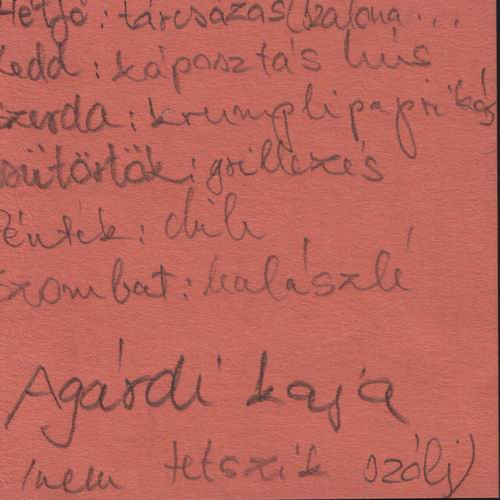 Hétfő: tárcsázás (szalona...
Kedd: káposztás hús
szerda: krumplipaprikás
csütörtök: grillezés
Péntek: chili
szombat: halászlé
Agárdi kaja
/nem tetszik szólj/